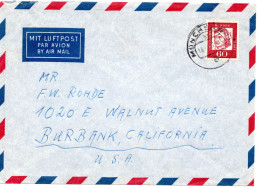 MIT LUFTPOST
PAR AVION
BY AIR MAIL
60
MR.
F.W. ROHDE
1020 E WALNUT AVENUE
BURBANK, CALIFORNIA
U.S.A.